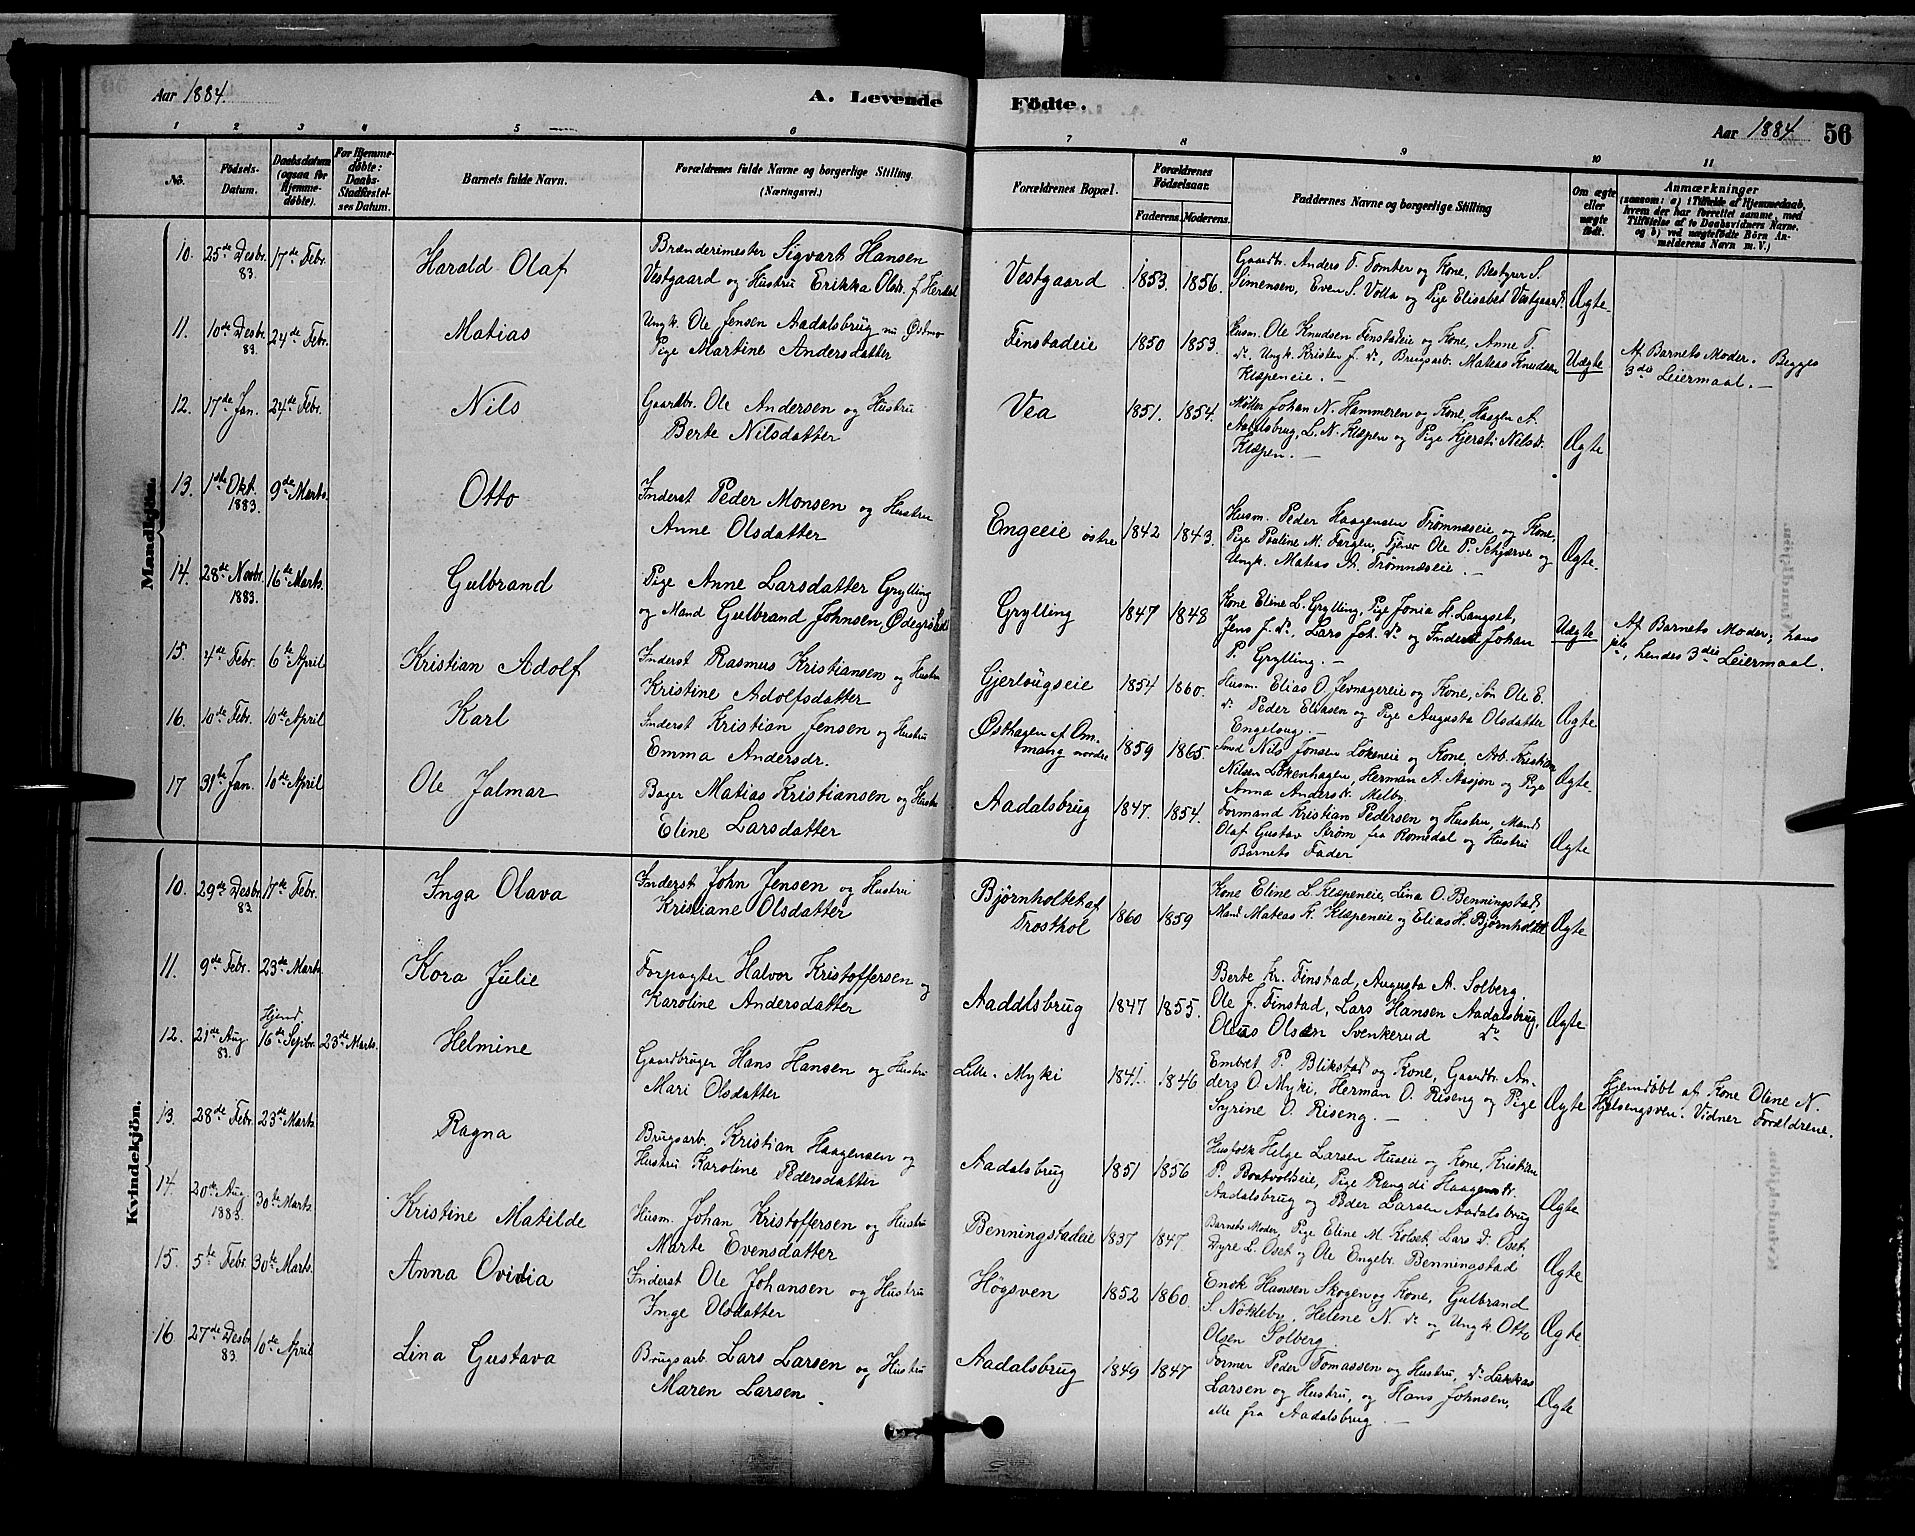 Aar 1884.
A. Levende
1 2 3 4 5 6
No.
Födsels-
Datum.
Daabsdatum
(ogsaa for
Hjemme-
döbte).
For Hjemme-
döbte:
Daabs-
Stadfæstel-
ses Datum.
Barnets fulde Navn.
Forældrenes fulde Navne og borgerlige Stilling
(Næringsvei.)
Mandkjön.
10. 25de Desbr. 83. 17de Febr. Harald Olaf
Brænderimester Sigvart Hansen
Vestgaard og Hustru Erikka Olsdr. f. Herdal
11. 10de Desbr. 83. 24de Febr. Matias
Ungk. Ole Jensen Aadalsbrug nu Østmo
Pige Martine Andersdatter
12. 17de Jan. 24de Febr. Nils
Gaardbr. Ole Andersen og Hustru
Berte Nilsdatter
13. 1ste Okt. 1883. 9de Marts Otto
Inderst Peder Monsen og Hustru
Anne Olsdatter
14. 28de Novbr. 1883. 16de Marts. Gulbrand
Pige Anne Larsdatter Grylling
og Mand Gulbrand Johnsen, Ødegrd
15. 4de Febr. 6te April Kristian Adolf
Inderst Rasmus Kristiansen og Hustru
Kristine Adolfsdatter
16. 10de Febr. 10de April Karl
Inderst Kristian Jensen og Hustru
Emma Andersdr.
17 31te Jan. 10de April Ole Jalmar
Bager Matias Kristiansen og Hustru
Eline Larsdatter
Kvindekjön.
10. 29de Desbr. 83 17de Febr. Inga Olava
Inderst John Jensen og Hustru
Kristiane Olsdatter
11. 9de Febr. 23de Marts Kora Julie
Forpagter Halvor Kristoffersen og
Karoline Andersdatter
12. 21de Aug 83. Hjemd. 16de Septbr. 23de Marts. Helmine
Gaardbruger Hans Hansen og Hustru
Mari Olsdatter
13. 28de Febr. 23de Marts. Ragna
Brugsarb. Kristian Haagensen og
Hustru Karoline Pedersdatter
14. 20de Aug 1883. 30te Marts Kristine Matilde
Husm. Johan Kristoffersen og Hustru
Marte Evensdatter
15. 5te Febr. 30te Marts. Anna Ovidia
Inderst Ole Johansen og Hustru
Inge Olsdatter
16 27de Desbr 83. 10de April Lina Gustava
Brugsarb. Lars Larsen og Hustru
Maren Larsen.
Födte.
Aar 1884 56
7 8 9 10 11
Forældrenes Bopæl.
Forældrenes
Födselsaar.
Faderens. Moderens.
Faddernes Navne og borgerlige Stilling
Om ægte
eller
uægte
födt.
Anmærkninger
(saasom: a) i Tilfælde af Hjemmedaab,
hvem der har forrettet samme, med
Tilföielse af to Daabsvidners Navne.
og b) ved uægtefödte Börn An-
melderens Navn m. V.)
Vestgaard 1853. 1856.
Gaardbr. Anders T. Tomter og Kone, Bestyrer S.
Simensen, Even S. Volla og Pige Elisabet Vestgaard. Ægte.
Finstadeie 1850 1853.
Husm. Ole Knudsen Finstadeie og Kone, Anne T.
do. Ungk. Kristen J. do, Brugsarb. Mateas Knudsen
Klæpeneie. - Uægte
Af Barnets Moder. Begges
3die Leiermaal. -
Vea 1851. 1854.
Møller Johan N. Hammeren og Kone, Haagen A.
Aadalsbrug, L. N. Klæpen og Pige Kjersti Nilsd.
Klæpen. - Ægte
Engeeie østre 1842 1843.
Husm. Peder Haagensen Trømnæseie og Kone,
Pige Pauline M. Fargen, Tjener Ole P. Schjærve og
Ungk. Mateas A. Trømnæseie. - Ægte.
Grylling 1847 1848
Kone Eline L. Grylling, Pige Jonia H. Langset,
Jens J. do, Lars Joh. do og Inderst Johan
P. Grylling. - Uægte
Af Barnets Moder, hans
hendes 3die Leiermaal.
Gjerlougseie 1854 1860.
Husm. Elias O. Jevnagereie og Kone, Søn Ole E.
do Peder Eliasen og Pige Augusta Olsdatter
Engeloug. - Ægte
Østhagen af Om-
mang nordre 1859 1865.
Smed Nils Jonsen Løkeneie og Kone, Arb. Kristian
Nilsen Løkenhagen, Herman A. Aasjon og Pige
Anna Andersdr. Melby. Ægte.
Aadalsbrug 1847. 1854.
Formand Kristian Pedersen og Hustru, Mand
Olaf Gustav Strøm fra Romedal og Hustru
Barnets Fader Ægte
Bjørnholtet af
Trosthol 1860 1859
Kone Eline L. Klæpeneie, Lina O. Benningstad,
Mand Mateas K. Klæpeneie og Elias H. Bjørnholtet Ægte
Aadalsbrug 1847 1855.
Berte Kr. Finstad, Augusta A. Solberg
Ole J. Finstad, Lars Hansen Aadalsbrug,
Olaus Olsen Svenkerud do Ægte
Lille-Myki 1841. 1846
Embret P. Blikstad og Kone, Gaardbr. An-
ders O. Myki, Herman O. Riseng og Pige
Syrine O. Riseng. - Ægte
Hjemdøbt af Kone Olene N.
Hjelsengsven. Vidner Forældrene.
Aadalsbrug 1851 1856
Husfolk Helge Larsen Huseie og Kone, Kristian
P. Raatvolteie, Pige Rangdi Haagensdr.
Aadalsbrug og Peder Larsen Aadalsbrug Ægte
Benningstadeie 1837 1847.
Barnets Moder, Pige Eline M. Kolset, Lars D. Oset,
Dyre L. Oset og Ole Engebr. Benningstad Ægte
Høgsven 1852 1860.
Enok Hansen Skogen og Kone, Gulbrand
S. Nökleby, Helene N. do og Ungk. Otto
Olsen Solberg. Ægte.
Aadalsbrug 1849 1847
Former Peder Tomassen og Hustru, do Lukkas
Larsen og Hustru, og Hans Johnsen,
alle fra Aadalsbrug. - Ægte